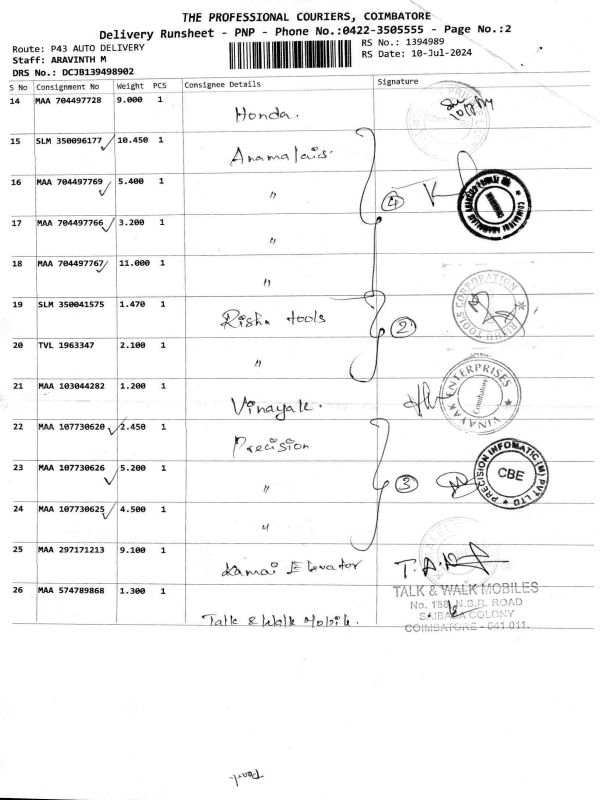 THE PROFESSIONAL COURIERS, COIMBATORE
Delivery Runsheet - PNP - Phone No.:0422-3505555 - Page No.:2
Route: P43 AUTO DELIVERY
Staff: ARAVINTH M
DRS No.: DCJB139498902
RS No.: 1394989
RS Date: 10-Jul-2024
S No Consignment No Weight PCS Consignee Details Signature
14 MAA 704497728 9.000 1 Honda.
15 SLM 350096177 ✓ 10.450 1 Anamalais.
16 MAA 704497769 ✓ 5.400 1 "
17 MAA 704497766 ✓ 3.200 1 "
4
18 MAA 704497767 ✓ 11.000 1 "
19 SLM 350041575 1.470 1 Risha tools
2
20 TVL 1963347 2.100 1 "
21 MAA 103044282 1.200 1 Vinayak.
VINAYAK ENTERPRISES
Coimbatore
22 MAA 107730620 ✓ 2.450 1 Precision
23 MAA 107730626 ✓ 5.200 1 "
3
PRECISION INFOMATIC (M) PVT LTD
CBE
24 MAA 107730625 ✓ 4.500 1 "
25 MAA 297171213 9.100 1 Elevator
26 MAA 574789868 1.300 1 Talk & Walk Mobile.
TALK & WALK MOBILES
No. 188, N.S.R. ROAD
SAIBABA COLONY
COIMBATORE - 641 011.